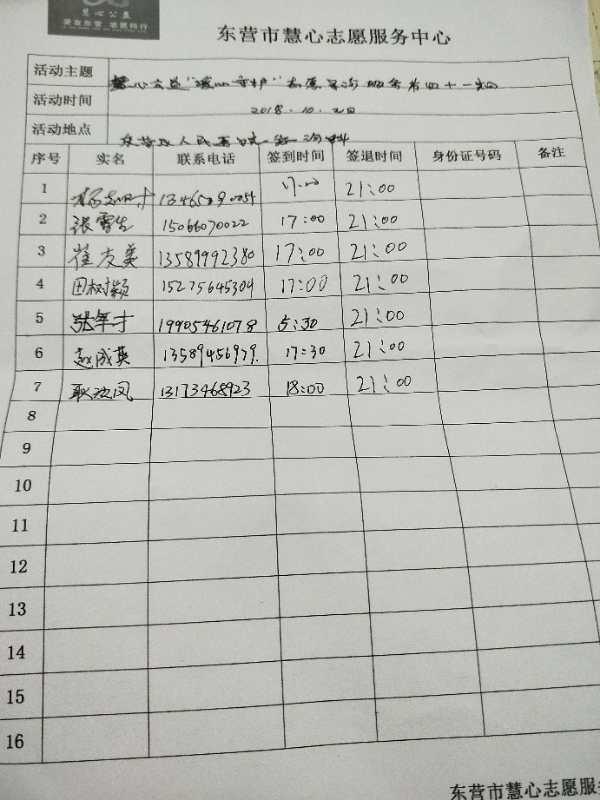 慧心公益
东营市慧心志愿服务中心
活动主题 慧心公益"暖心守护"志愿 服务第四十一期
活动时间 2018.10.20日
活动地点 东营区人民医院
序号 实名 联系电话 签到时间 签退时间 身份证号码 备注
1 17:00 21:00
2 张雪生 15066070022 17:00 21:00
3 崔友美 13589992380 17:00 21:00
4 田树颖 15275645304 17:00 21:00
5 张军才 19905461078 5:30 21:00
6 赵成英 13589456979 17:30 21:00
7 耿波凤 13173468923 18:00 21:00
8
9
10
11
12
13
14
15
16
东营市慧心志愿服